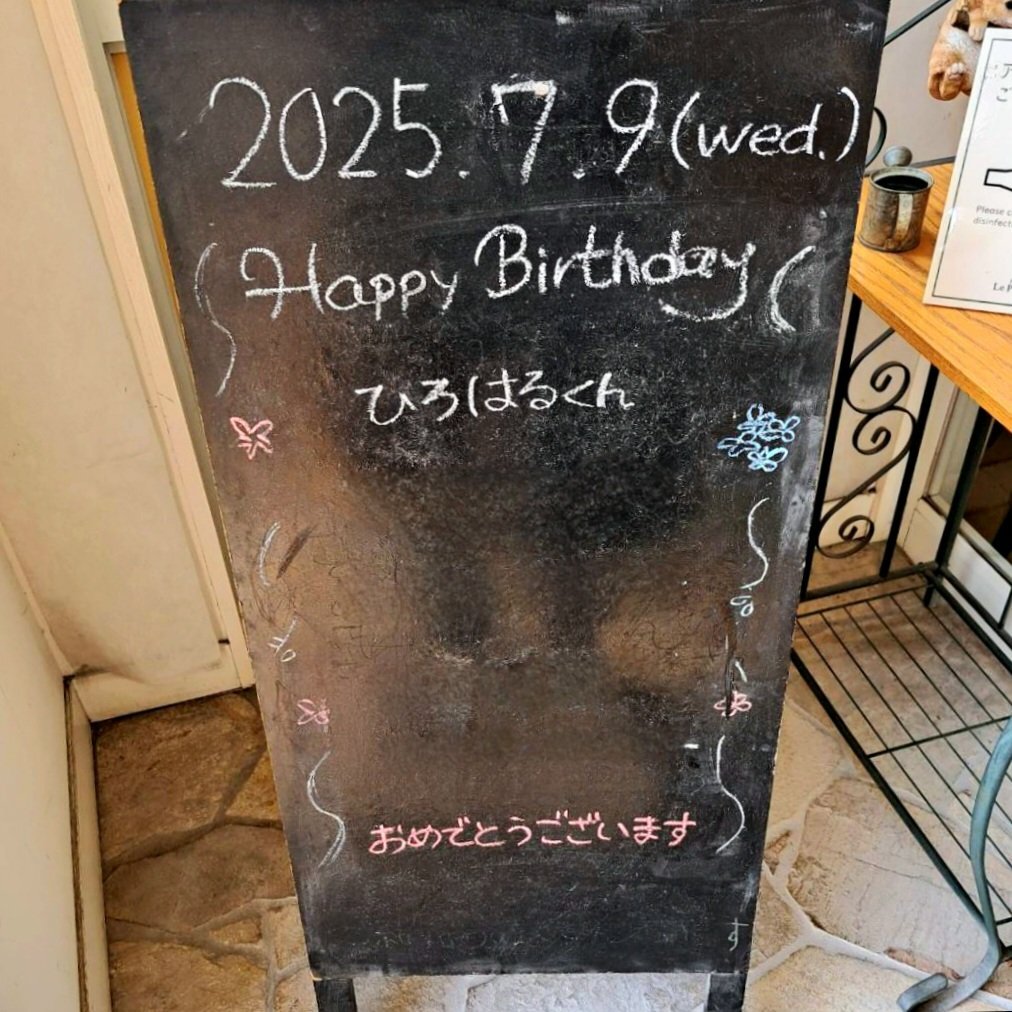 2025.7.9(wed.)
Happy Birthday
ひろはるくん
おめでとうございます
Please
disinfect